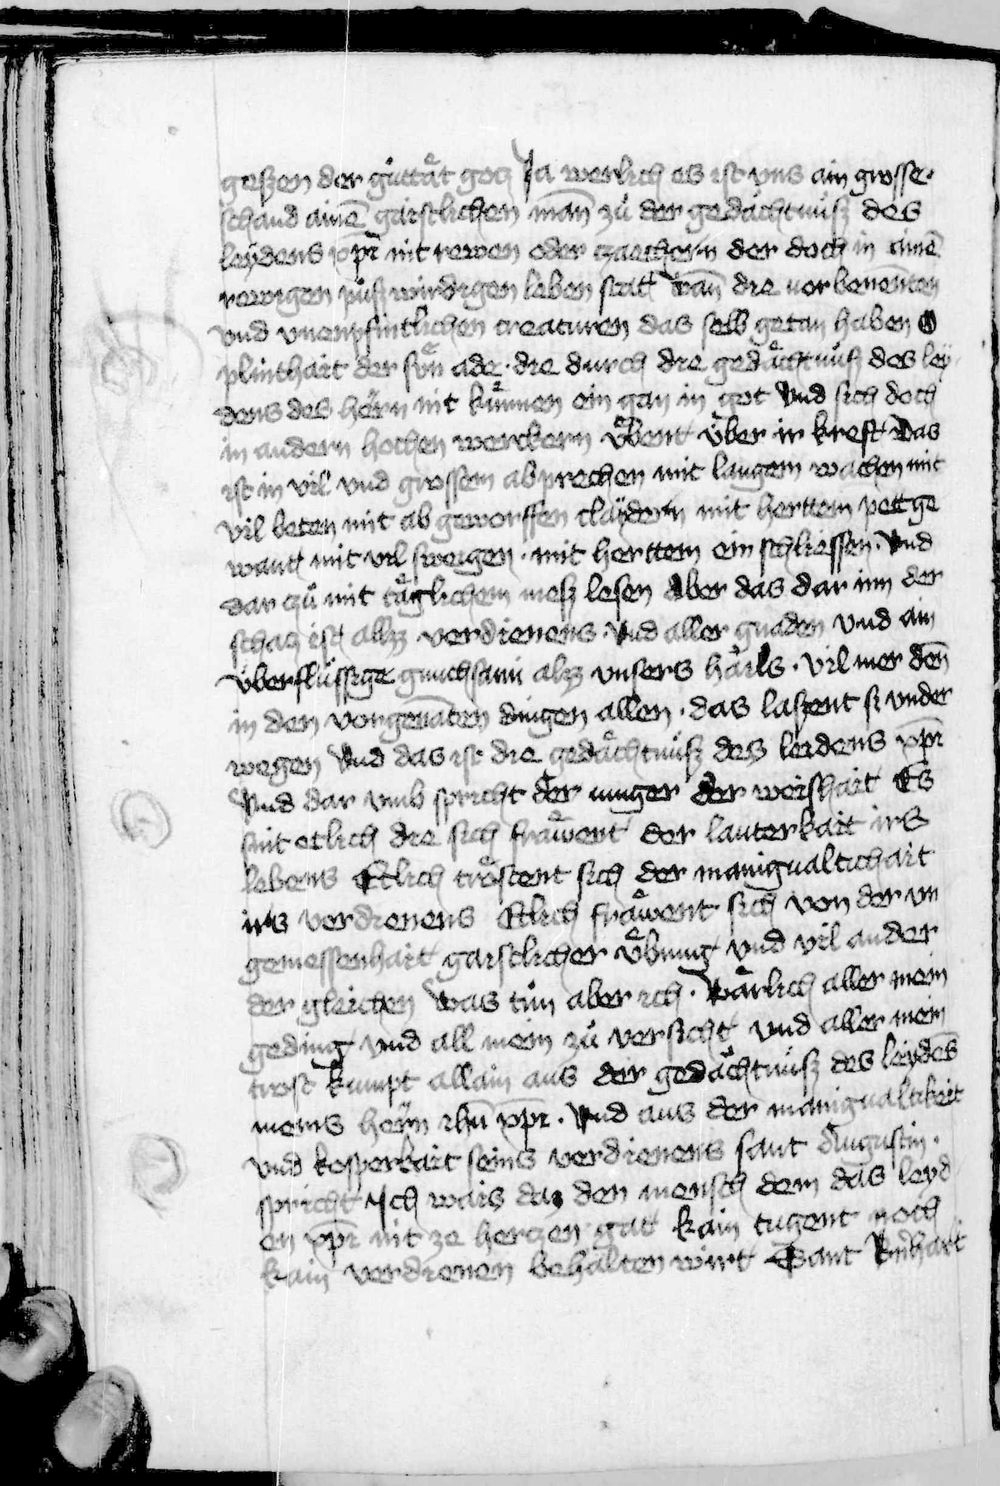 geszen der gůttăt gotz Ja werlich es ist vns ain grosse·
schand ainē gaistlichen man̄ zů der gedăchtnŭsz des
leÿdens xp̄i nit rewen oder zaehern der doch in ainē
rewigen pŭszwirdigen leben stătt wan̄ die vor benenten
vnd vnenpfintlichen creaturen das selb getan haben O
plinthait der sŭn ade· die durch die gedăchtnŭsz des leÿ
dens des herrn nit kŭnnen ein gan in got Vnd sich doch
in andern hochen werckern ŭbent über ir kreft Das
ist in vil vnd grossem abprechen mit langem wachen mit
vil beten mit ab geworffen claÿdern mit herttem pettge
wantt mit vil sweigen· mit herttem ein schliessen· Vnd
dar zů mit tăglichem mesz lesen Aber das dar inn der
schatz ist allez verdienens· Vnd aller gnaden vnd ain
überflŭssige gnuchsami alz vnsers hăils· vil mer den̄
in den vorgenāten dingen allen· das laszent sz vnder
wegen Vnd das ist die gedăchtnŭsz desz leidens xp̄i
Vnd dar vmb spricht der iunger der weishait Es
sint etlich die sich frăwent der lauterkait irs
lebens Etlich trŏstent sich der manigualtichait
irs verdienens Etlich frăwent sich von der vn
gemessenhait gaistlicher ŭbung vnd vil ander
der gleichen Was tůn aber ich· Wărlich aller mein
geding vnd all mein zů versicht vnd aller mein
trost kumpt allain aus der gedăchtnŭsz des leÿdēs
meins herrn ihū xp̄i· Vnd aus der manigualtikeit
vnd kosperkait seins verdienens sant Augustin·
spricht Ich wais daz den mensch dem das leyd
en xp̄i nit ze herczen gat kain tugent noch
kain verdienen behalten wirt Sant Bn̄hart